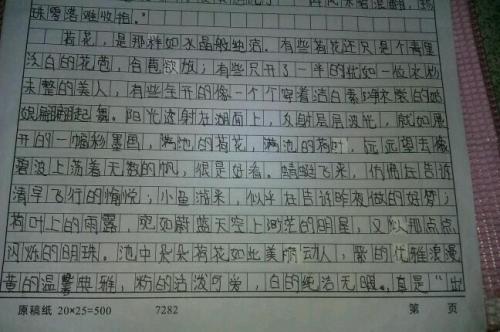 珠零落难收拾。”
荷花，是那样如水晶般纯洁。有些荷花还只是个青里
泛白的花苞，含苞欲放；有些只开了一半的优如一位水妆
未整的美人，有些全开的像一个个穿着洁白素净衣裳的姑
娘翩翩起舞。阳光透射在湖面上，反射层层波光，就如展
开的一幅彩墨画，满池的荷花，满池的荷叶，远远望去像
碧波上荡着无数的帆，很是好看。蜻蜓飞来，仿佛在告诉
清早飞行的愉悦；小鱼游来，似乎在告诉昨夜做的好梦；
荷叶上的雨露，宛如蔚蓝天空上渺茫的明星，又似那点点
闪烁的明珠。池中朵朵荷花如此美丽动人，紫的优雅浪漫
黄的温馨典雅，粉的活泼可爱，白的纯洁无暇。真是“出
原稿纸 20×25=500 7282 第 页